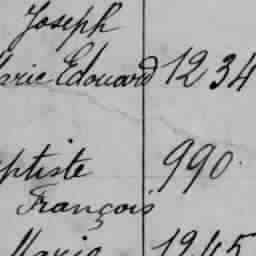 Joseph
Marie Edouard 1234
ptiste 990
François
Marie 1245